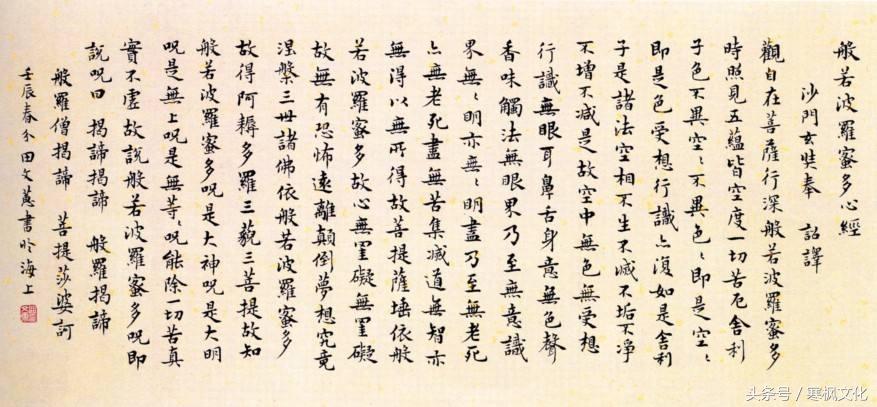 般若波羅蜜多心經
沙門玄奘奉 詔譯
觀自在菩薩行深般若波羅蜜多
時照見五蘊皆空度一切苦厄舍利
子色不異空〻不異色〻即是空〻
即是色受想行識亦復如是舍利
子是諸法空相不生不滅不垢不淨
不增不減是故空中無色無受想
行識無眼耳鼻舌身意無色聲
香味觸法無眼界乃至無意識
界無〻明亦無〻明盡乃至無老死
亦無老死盡無苦集滅道無智亦
無得以無所得故菩提薩埵依般
若波羅蜜多故心無罣礙無罣礙
故無有恐怖遠離顛倒夢想究竟
涅槃三世諸佛依般若波羅蜜多
故得阿耨多羅三藐三菩提故知
般若波羅蜜多呪是大神呪是大明
呪是無上呪是無等〻呪能除一切苦真
實不虛故說般若波羅蜜多呪即
說呪曰 揭諦揭諦 般羅揭諦
般羅僧揭諦 菩提莎婆訶
壬辰春分田文蕙書於海上
头条号 / 寒枫文化